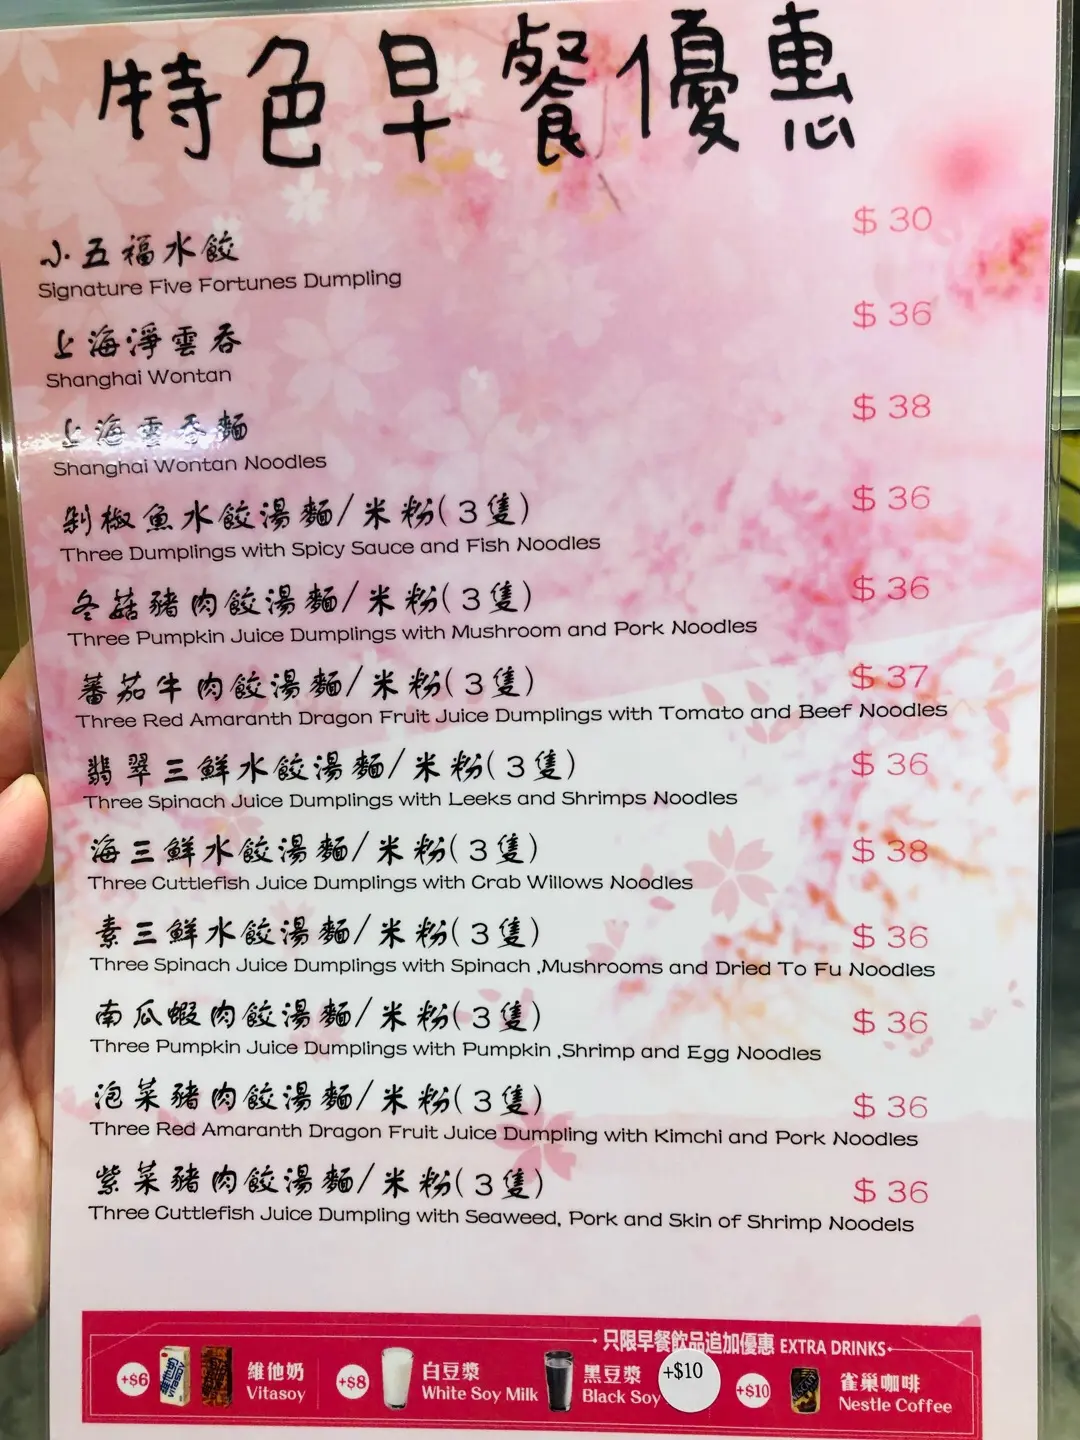 特色早餐優惠
$ 30
小五福水餃
Signature Five Fortunes Dumpling
$ 36
上海淨雲吞
Shanghai Wontan
$ 38
上海雲吞麵
Shanghai Wontan Noodles
$ 36
剁椒魚水餃湯麵/米粉(3隻)
Three Dumplings with Spicy Sauce and Fish Noodles
$ 36
冬菇豬肉餃湯麵/米粉(3隻)
Three Pumpkin Juice Dumplings with Mushroom and Pork Noodles
$ 37
蕃茄牛肉餃湯麵/米粉(3隻)
Three Red Amaranth Dragon Fruit Juice Dumplings with Tomato and Beef Noodles
$ 36
翡翠三鮮水餃湯麵/米粉(3隻)
Three Spinach Juice Dumplings with Leeks and Shrimps Noodles
$ 38
海三鮮水餃湯麵/米粉(3隻)
Three Cuttlefish Juice Dumplings with Crab Willows Noodles
$ 36
素三鮮水餃湯麵/米粉(3隻)
Three Spinach Juice Dumplings with Spinach ,Mushrooms and Dried To Fu Noodles
$ 36
南瓜蝦肉餃湯麵/米粉(3隻)
Three Pumpkin Juice Dumplings with Pumpkin ,Shrimp and Egg Noodles
$ 36
泡菜豬肉餃湯麵/米粉(3隻)
Three Red Amaranth Dragon Fruit Juice Dumpling with Kimchi and Pork Noodles
$ 36
紫菜豬肉餃湯麵/米粉(3隻)
Three Cuttlefish Juice Dumpling with Seaweed, Pork and Skin of Shrimp Noodels
只限早餐飲品追加優惠 EXTRA DRINKS
+$6
維他奶
VITASOY
維他奶
Vitasoy
+$8
白豆漿
White Soy Milk
黑豆漿
Black Soy
+$10
+$10
雀巢咖啡
Nestle Coffee